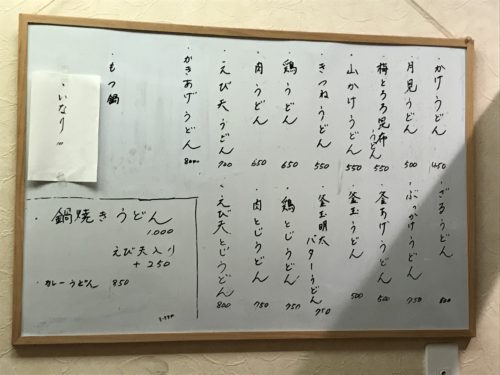 ・かけうどん 450
・月見うどん 500
・梅とろろ昆布うどん 550
・山かけうどん 550
・きつねうどん 550
・鶏うどん 650
・肉うどん 650
・えび天うどん 700
・かきあげうどん 800
・もつ鍋
・いなり
・ざるうどん 800
・ぶっかけうどん 750
・釜あげうどん 500
・釜玉うどん 500
・釜玉明太バターうどん 750
・鶏とじうどん 750
・肉とじうどん 750
・えび天とじうどん 800
・鍋焼きうどん
1,000
えび天入り
+250
・カレーうどん 850